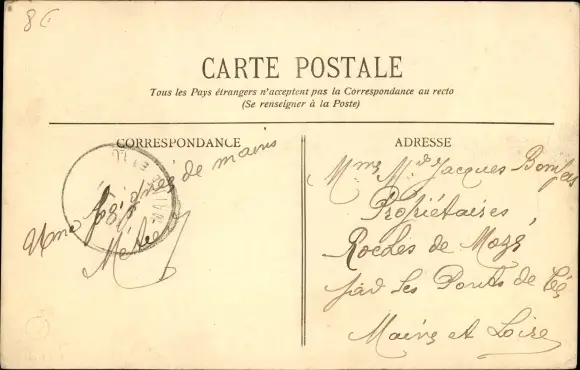 CARTE POSTALE
Tous les Pays étrangers n'acceptent pas la Correspondance au recto
(Se renseigner à la Poste)
CORRESPONDANCE
Une poignée de mains
ADRESSE
Mme Jacques
Propriétaires
de Mozé
par Les Ponts de Cé
Maine et Loire